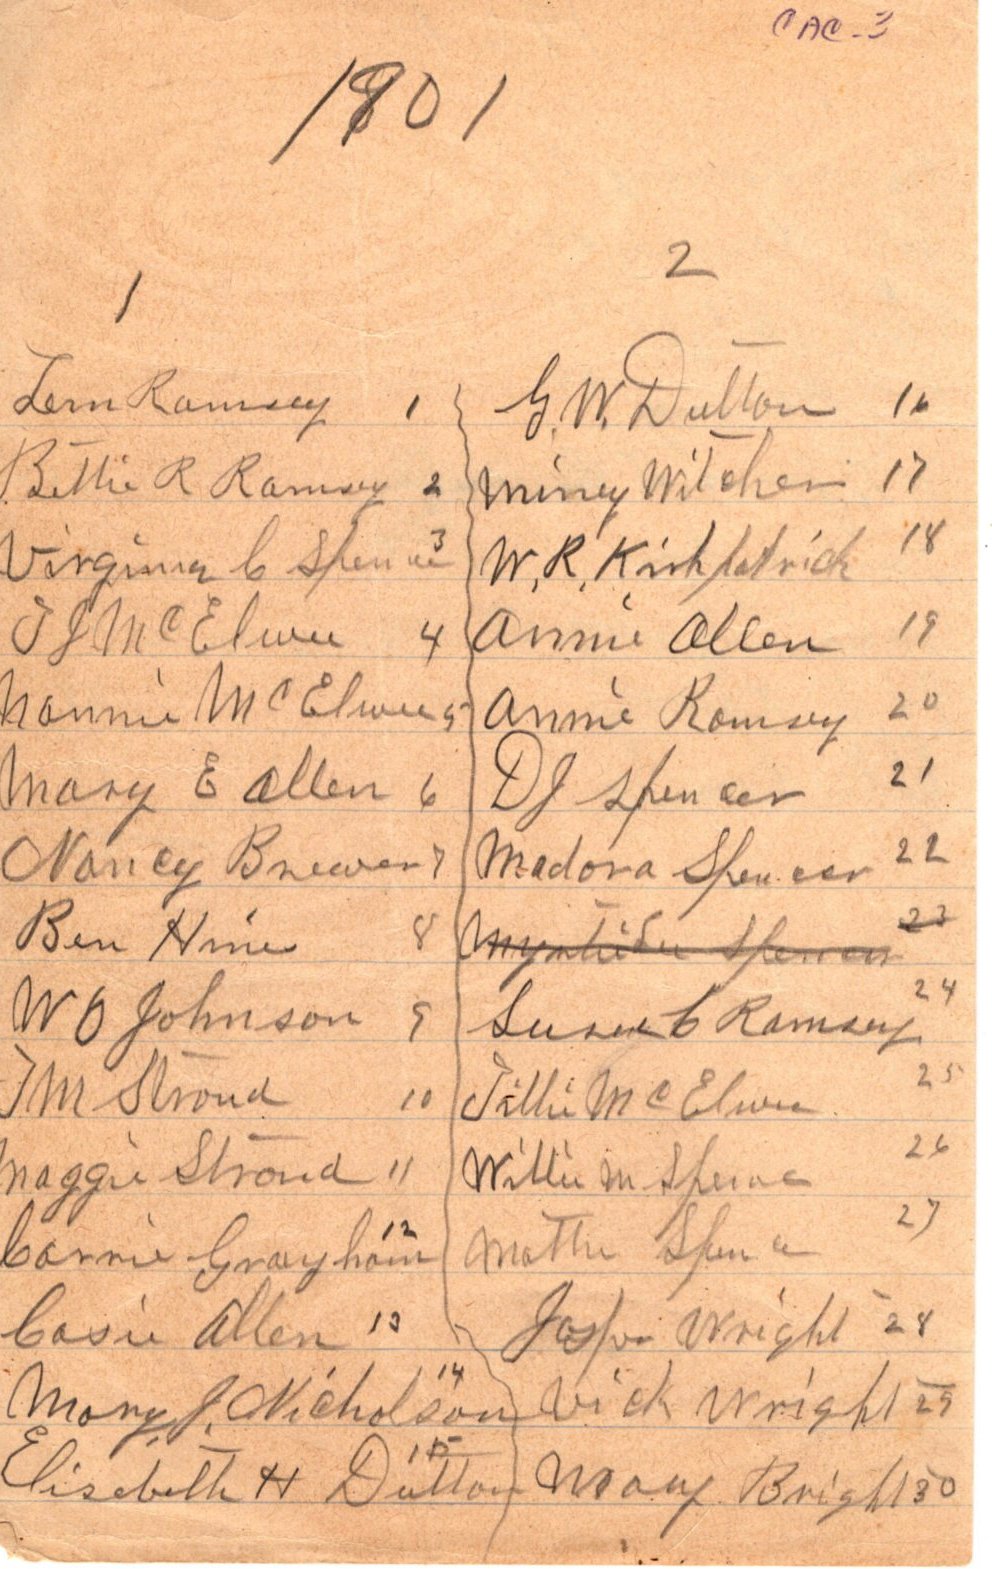 CAC-3
1801
1
Lem Ramsey 1
Bettie R Ramsey 2
Virginia C Spence 3
T J McElwee 4
Nannie McElwee 5
Mary E Allen 6
Nancy Brewer 7
Ben Hine 8
W O Johnson 9
T M Stroud 10
Maggie Stroud 11
Carrie Grayham 12
Casie Allen 13
Mary, J. Nicholson 14
Elisebeth H Dutton 15
2
G. W. Dutton 16
Miney Witcher 17
W. R. Kirkpatrick 18
Annie Allen 19
Annie Ramsey 20
D J Spencer 21
Madora Spencer 22
Spencer 23
Susan C Ramsey 24
Tillie McElwee 25
Willie M Spence 26
Mattie Spence 27
Jasper Wright 28
Vick Wright 29
Mary Bright 30